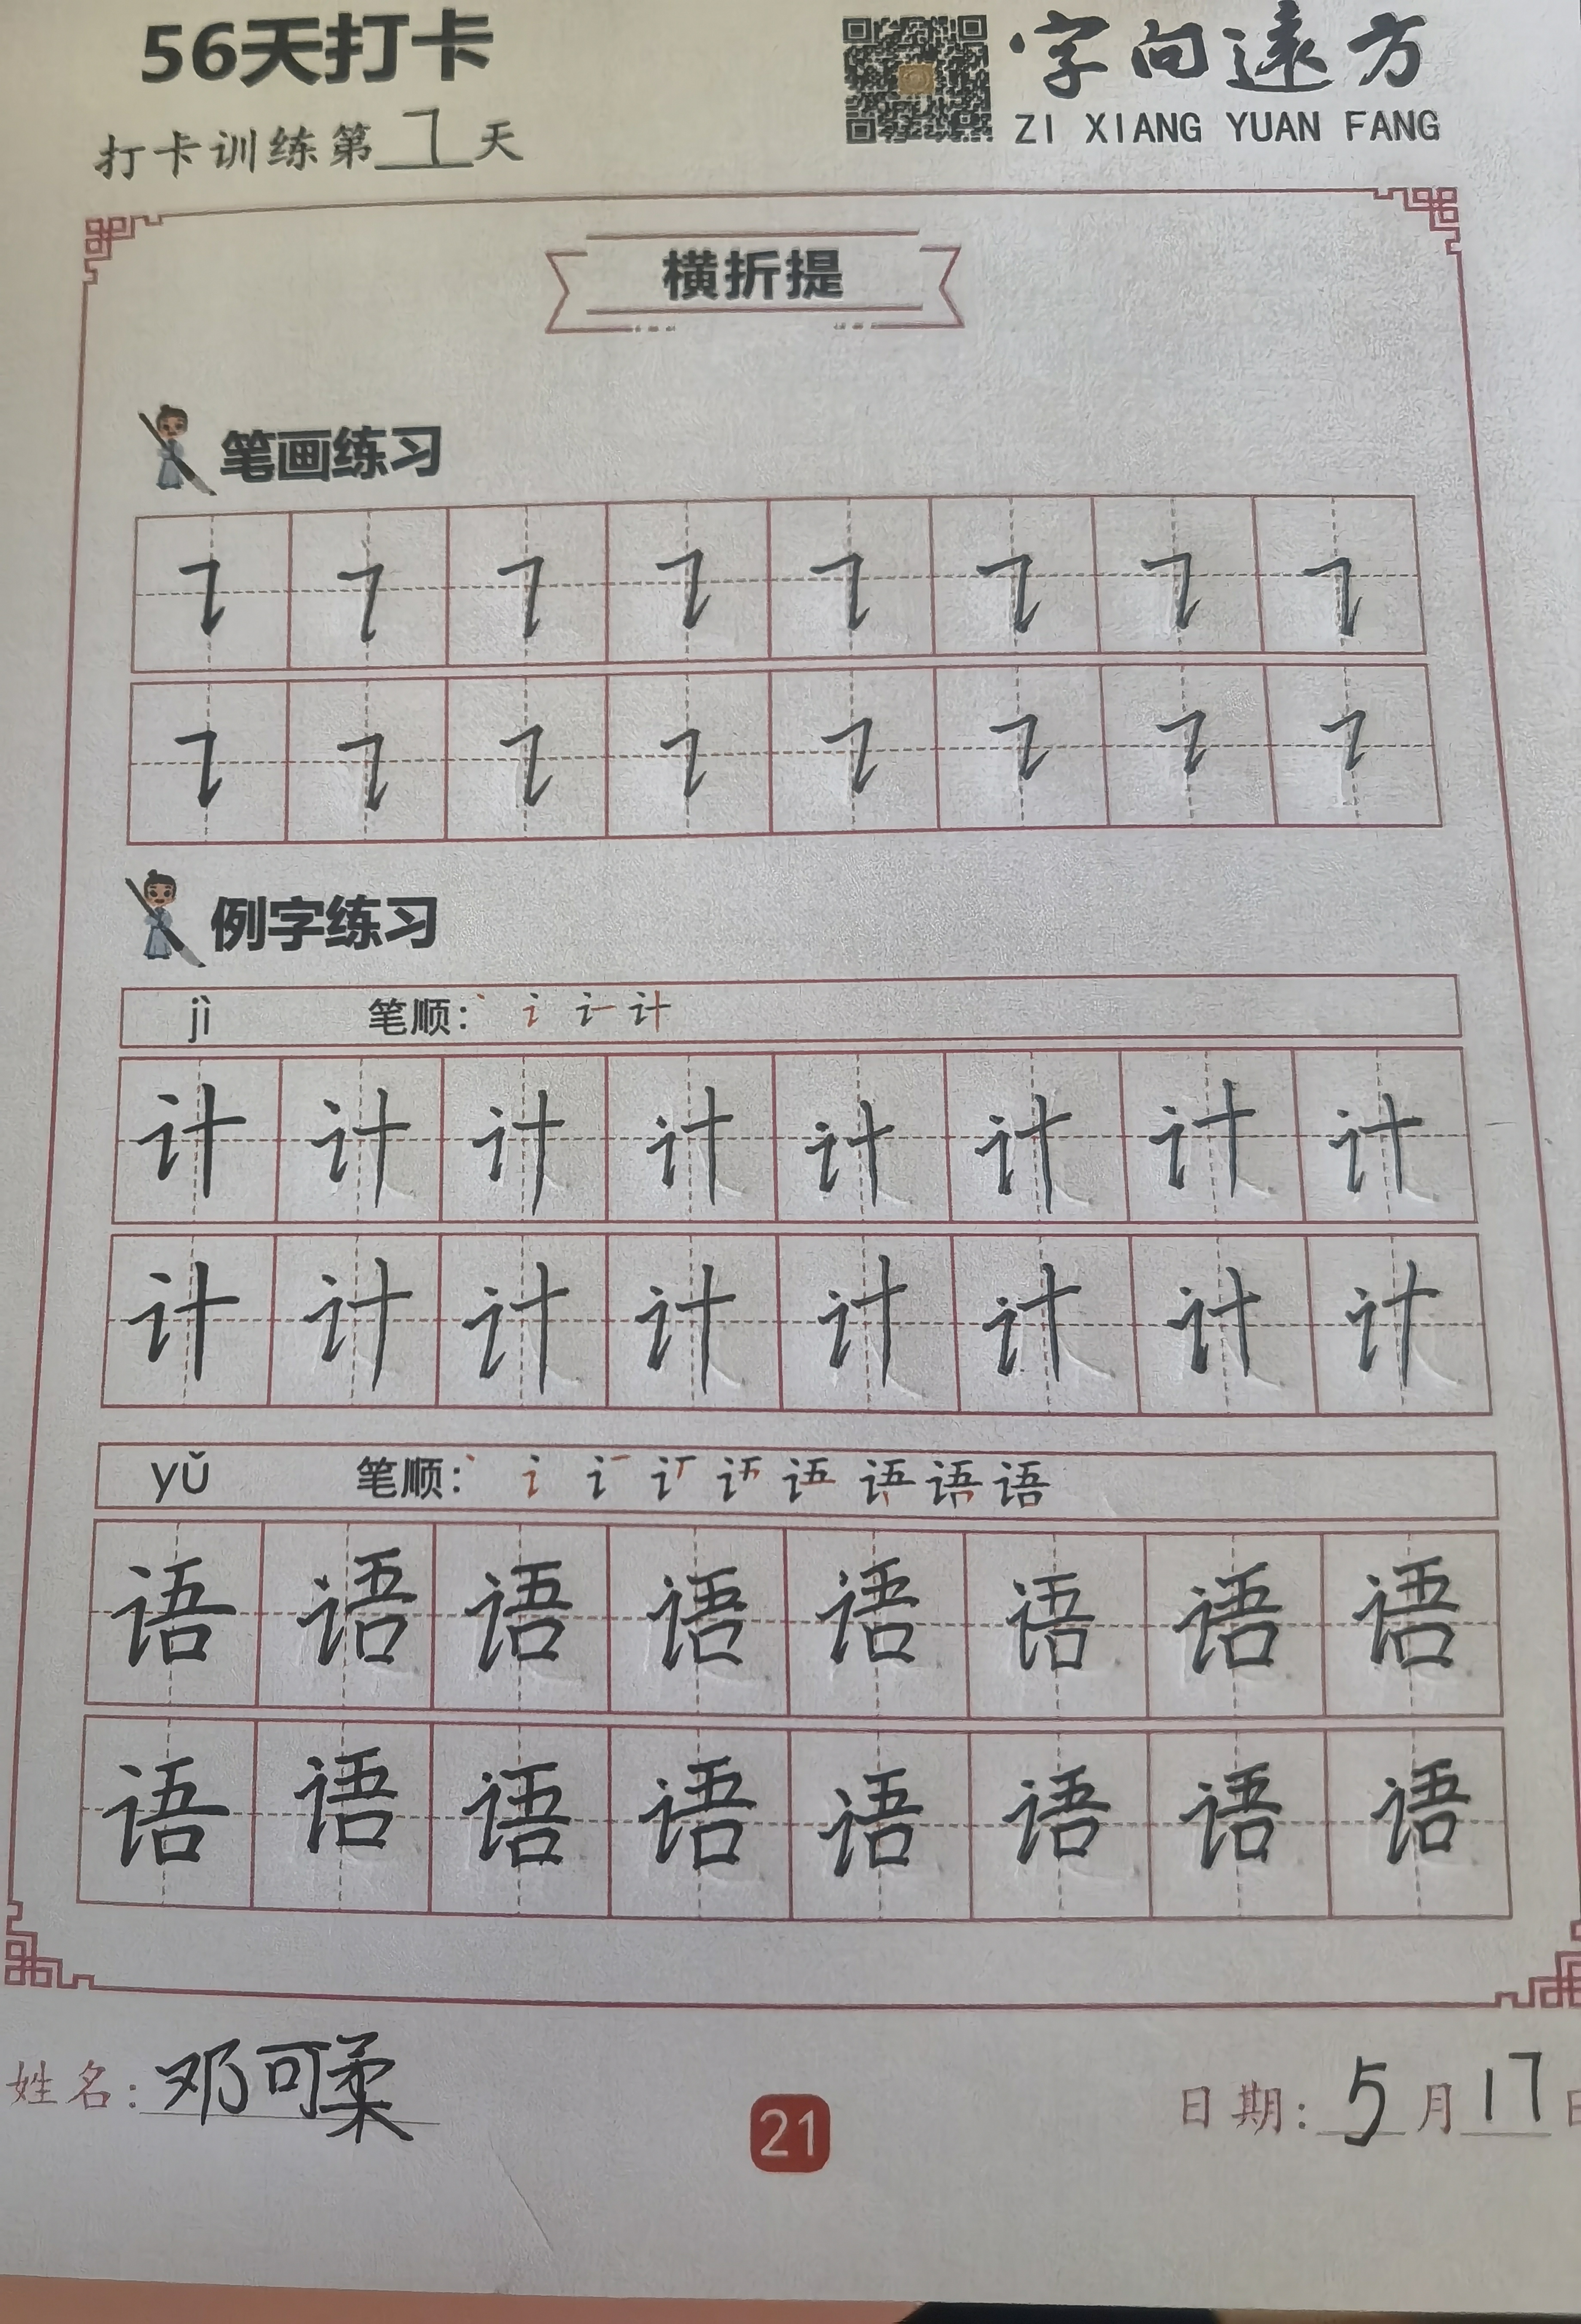 56天打卡
字向遠方
ZI XIANG YUAN FANG
打卡训练第7天
横折提
笔画练习
例字练习
jì 笔顺：
计 计 计 计 计 计 计 计
计 计 计 计 计 计 计 计
yǔ 笔顺： 语
语 语 语 语 语 语 语 语
语 语 语 语 语 语 语 语
姓名：邓可柔
21
日期：5月17日